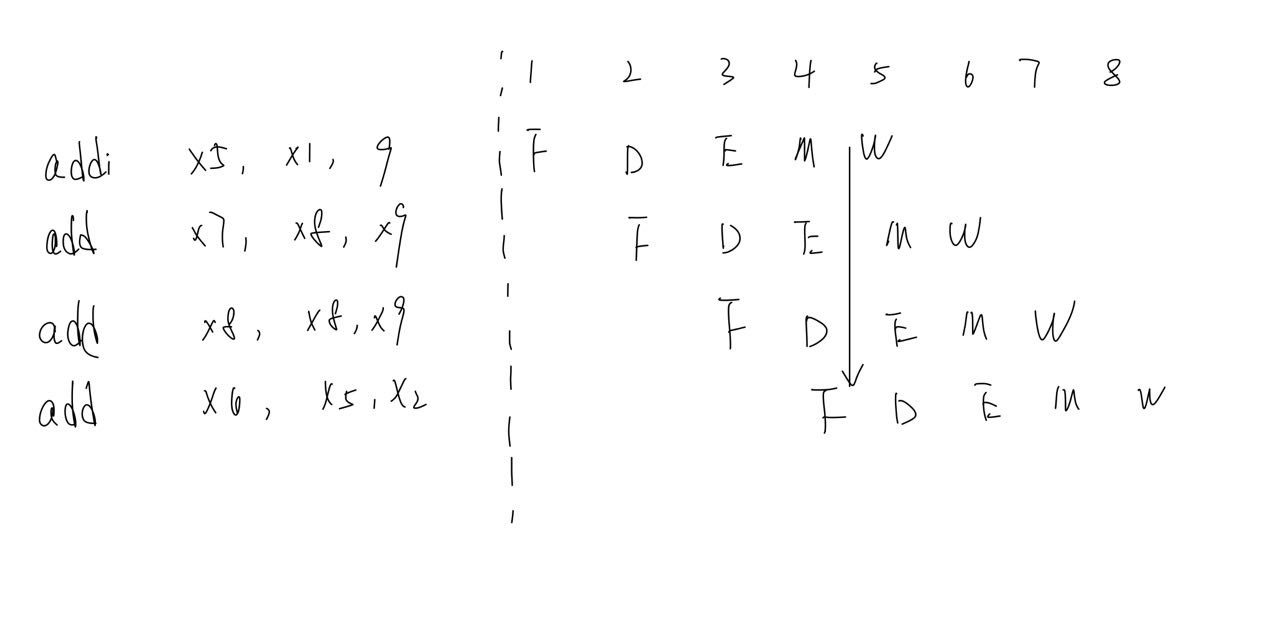 1 2 3 4 5 6 7 8
addi x5, x1, 9 F D E M W
add x7, x8, x9 F D E M W
add x8, x8, x9 F D E M W
add x6, x5, x2 F D E M W